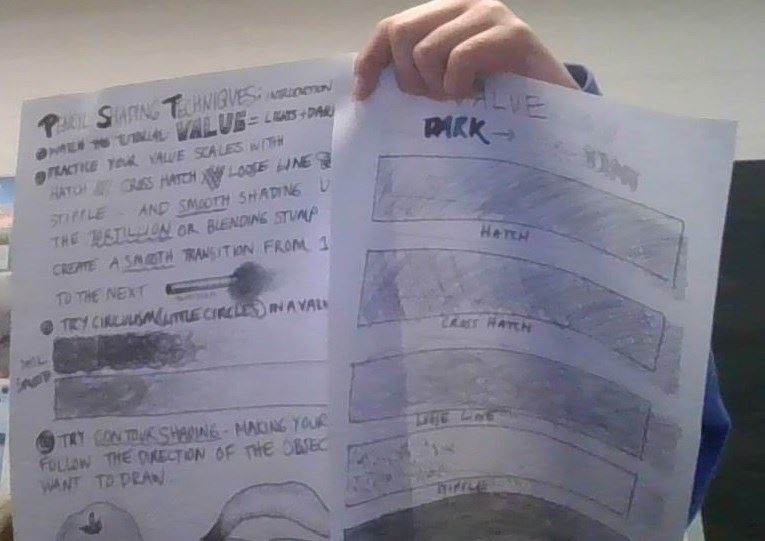 PENCIL SHADING TECHNIQUES: INTRODUCTION
WATCH THE TUTORIAL VALUE = LIGHTS + DAR
PRACTICE YOUR VALUE SCALES WITH
HATCH CROSS HATCH LOOSE LINE
STIPPLE AND SMOOTH SHADING U
THE TORTILLION OR BLENDING STUMP
CREATE A SMOOTH TRANSITION FROM 1
TO THE NEXT
TRY CIRCULISM (LITTLE CIRCLES) IN A VAL
SMOOTH
TRY CONTOUR SHADING - MAKING YOUR
FOLLOW THE DIRECTION OF THE OBJEC
WANT TO DRAW
VALUE
DARK →
HATCH
CROSS HATCH
LOOSE LINE
STIPPLE